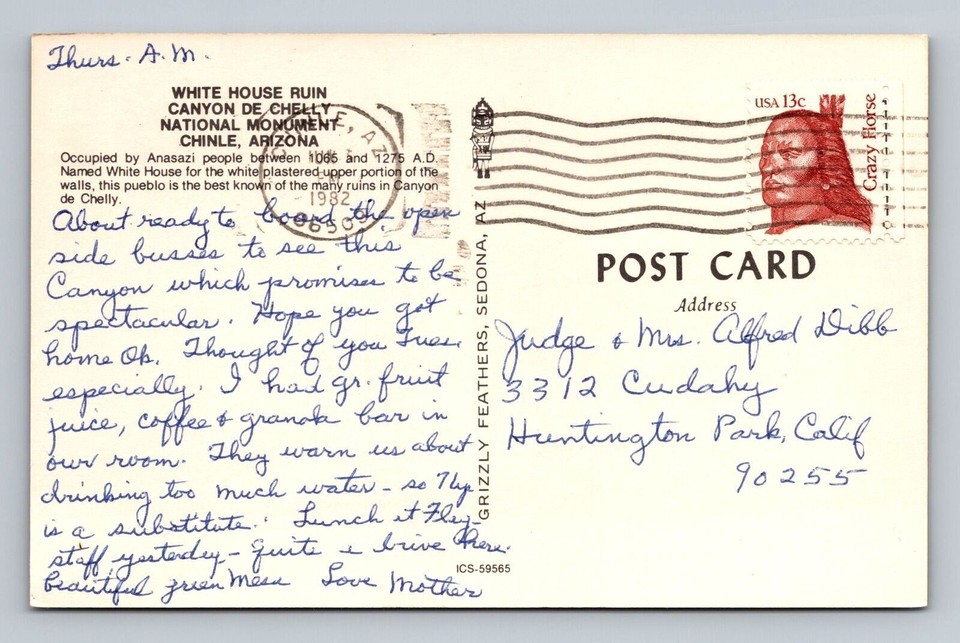 Thurs. A.M.
WHITE HOUSE RUIN
CANYON DE CHELLY
NATIONAL MONUMENT
CHINLE, ARIZONA
Occupied by Anasazi people between 1065 and 1275 A.D.
Named White House for the white plastered upper portion of the
walls, this pueblo is the best known of the many ruins in Canyon
de Chelly.
About ready to board the open
side busses to see this
Canyon which promises to be
spectacular. Hope you got
home Ok. Thought of you Tues.
especially. I had gr. fruit
juice, coffee & granola bar in
our room. They warn us about
drinking too much water - so 7up
is a substitute. Lunch at Flag-
staff yesterday - Quite a drive there.
beautiful green Mesa Love Mother
AZ
1982
86503
GRIZZLY FEATHERS, SEDONA, AZ
ICS-59565
USA 13c
Crazy Horse
POST CARD
Address
Judge & Mrs. Alfred Dibb
3312 Cudahy
Huntington Park, Calif
90255